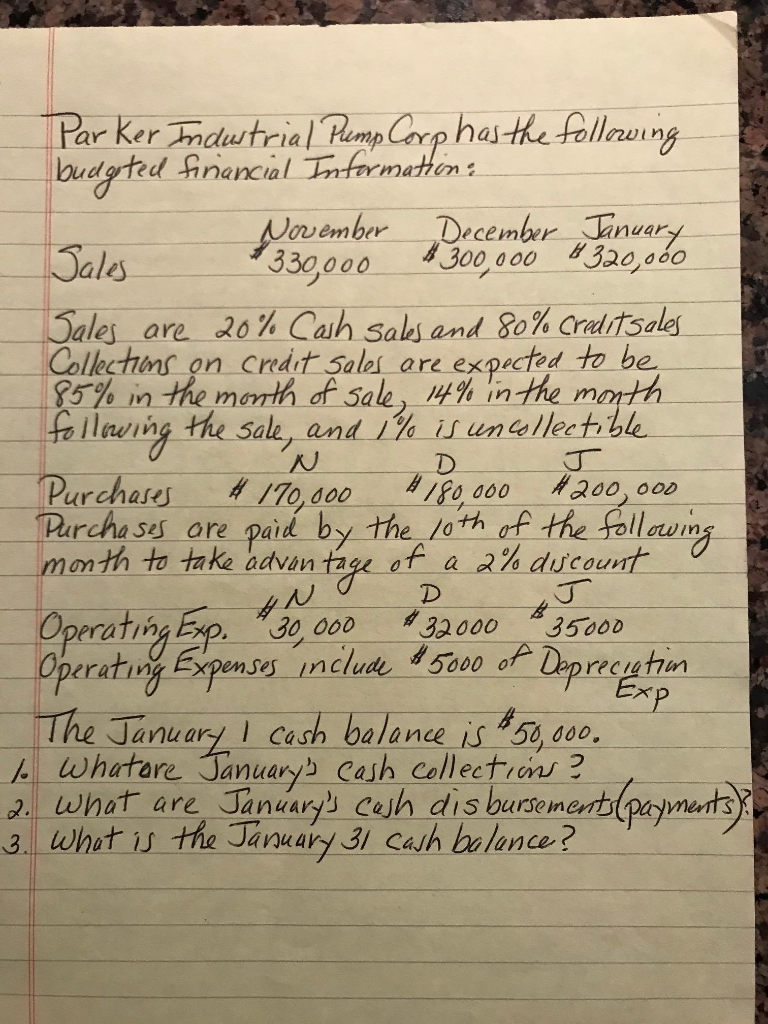 Parker Industrial Pump Corp has the following
budgted financial Information:
November December January
Sales $330,000 $300,000 $320,000
Sales are 20% Cash sales and 80% Credit sales
Collections on credit sales are expected to be
85% in the month of sale, 14% in the month
following the sale, and 1% is uncollectible
N D J
Purchases $170,000 $180,000 $200,000
Purchases are paid by the 10th of the following
month to take advantage of a 2% discount
N D J
Operating Exp. $30,000 $32000 $35000
Operating Expenses include $5000 of Depreciation
Exp
The January 1 cash balance is $50,000.
1. What are January's cash collections?
2. What are January's cash disbursements(payments)?
3. What is the January 31 cash balance?